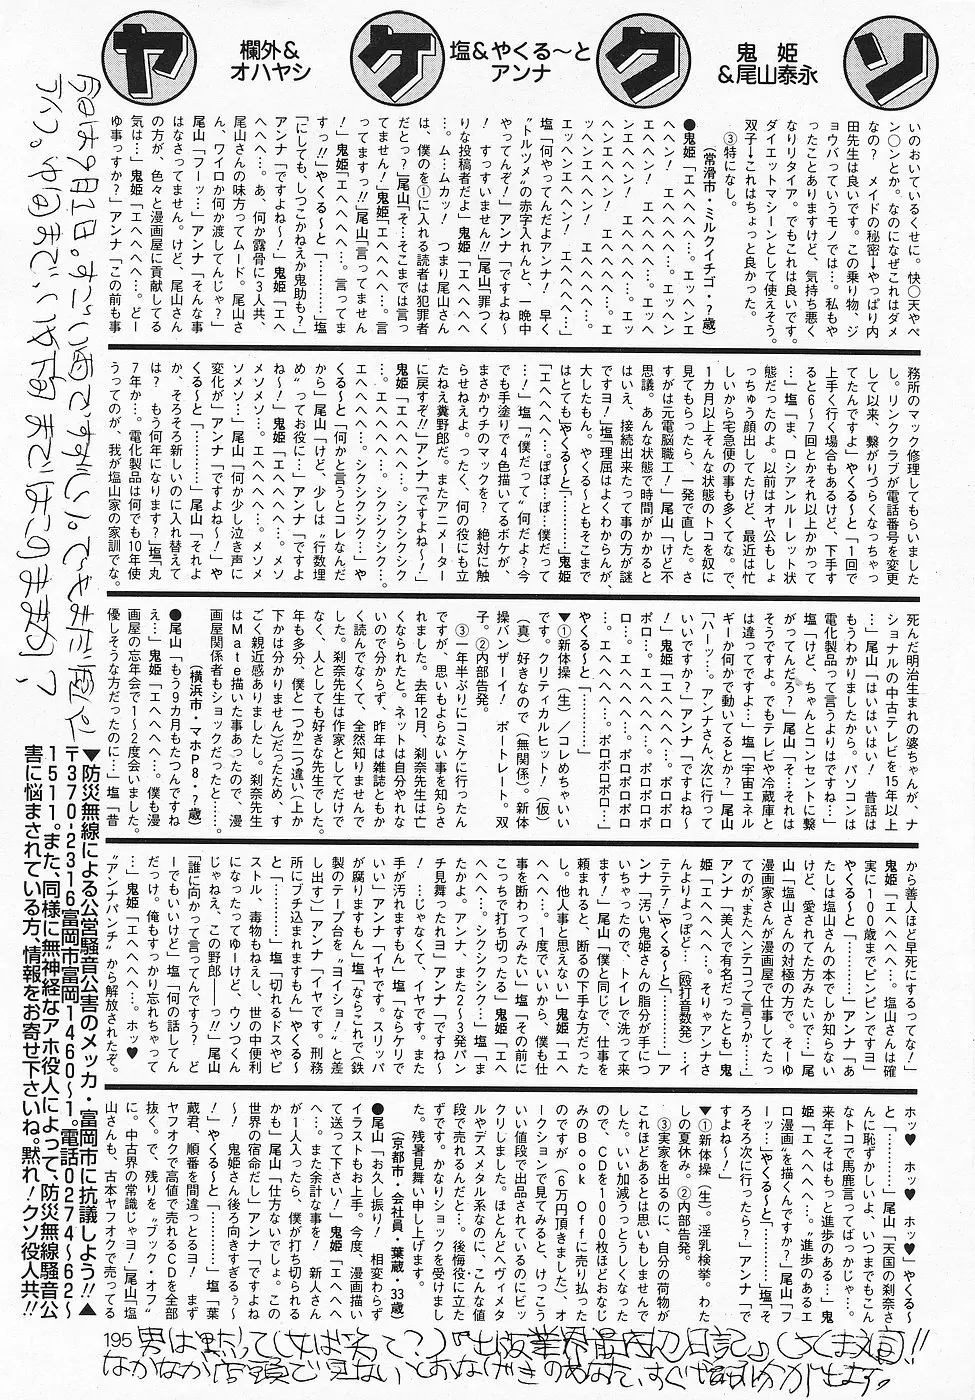 ソ
鬼 姫
&尾山泰永
ク
塩&やくる〜と
アンナ
ケ
欄外&
オハヤシ
ヤ
いのおいているくせに。快〇天やペ
ン〇ンとか。なのになぜこれはダメ
なの? メイドの秘密→やっぱり内
田先生は良いです。この乗り物、ジ
ョウバっていうモノでは…。私もや
ったことありますけど、気持ち悪く
なりリタイア。でもこれは良いです。
ダイエットマシーンとして使えそう。
双子→これはちょっと良かった。
③特になし。
(常滑市・ミルクイチゴ・?歳)
●鬼姫「エヘヘヘヘ…。エッヘンエ
ヘヘン! エヘヘヘヘ…。エッヘン
エヘヘン! エヘヘヘヘ…。エッヘ
ンエヘヘン! エヘヘヘヘ…。エッ
ヘンエヘヘン! エヘヘヘヘ…。エ
エッヘンエヘヘン! エヘヘヘヘ…」
塩「何やってんだよアンナ! 早く
〝トルツメ〟の赤字入れんと、一晩中
やってんぞ!」アンナ「ですよね〜
! すっすいません!!」尾山「罪つく
りな投稿者だよ」鬼姫「エヘヘヘヘ
…。ム…ムカッ! つまり尾山さん
は、僕のを①に入れる読者は犯罪者
だとっ?」尾山「そ…そこまでは言っ
てません!」鬼姫「エヘヘヘヘ…。言
ってますっ!!」尾山「言ってませ
ん!」鬼姫「エヘヘヘヘ…。言ってま
すっ!!」やくる〜と「…………」塩
「にしても、しつこかねえか鬼助も?」
アンナ「ですよね〜!」鬼姫「エヘ
ヘヘヘ…。あ、何か露骨に3人共、
尾山さんの味方ってムード。尾山さ
ん、ワイロか何か渡してんでしょ〜」
尾山「フーッ…」アンナ「そんな事
はなさってません。けど、尾山さん
の方が、色々と漫画屋に貢献してる
気は…」鬼姫「エヘヘヘヘ…。どー
ゆ事っすか?」アンナ「この前も事
務所のマック修理してもらいました
し。リンククラブが電話番号を変更
して以来、繋がりづらくなっちゃっ
てたんですよ」やくると「1回で
上手く行く場合もあるけど、下手す
ると6〜7回とかそれ以上かかって
…」塩「ま、ロシアンルーレット状
態だったのよ。以前はオヤ公もしょ
っちゅう顔出してたけど、最近は忙
しいから宅急便の事も多くてな。で、
1カ月以上そんな状態のトコを奴に
見てもらったら、一発で直した。さ
すがは元電脳職工!」尾山「けど不
思議。あんな状態で時間がかかると
はいえ、接続出来たって事の方が謎
ですヨ!」塩「理屈はよくわからんが、
大したもんだ。やくるーともそこまで
はとても」やくる〜と「…………」鬼姫
「エヘヘヘヘ…。ぽぽ…ぽ…僕だって
…」塩「〝僕だって〟何だよ? 今
でも手塗りで4色描いてるボケが、
まさかウチのマックを? 絶対に触
らせねえよ。ったく、何の役にも立
たねえ糞野郎だ。またアニメーター
に戻すぞ!!」アンナ「ですよね〜!」
鬼姫「エヘヘヘヘ…。シクシクシク
…。エヘヘヘヘ…。シクシクシク…。
エヘヘヘヘ…。シクシクシク…」や
くると「何かと言うとコレなんだ
から」尾山「けど、少しは〝行数埋
め〟ってお役に…」アンナ「ですよ
ね〜!」鬼姫「エヘヘヘヘ…。メソメ
ソメソ…。エヘヘヘヘ…。メソメ
ソメソ…」尾山「何か少し泣き声に
変化が」アンナ「ですよね〜!」や
くる〜と「…………」尾山「それよ
か、そろそろ新しいのに入れ替えて
は? もう何年になります?」塩「丸
7年か…。電化製品は何でも10年使
うってのが、我が塩山家の家訓でな。
死んだ明治生まれの婆ちゃんが、ナ
ショナルの中古テレビを15年以上
…」尾山「はいはいはい! 昔話は
もうわかりましたから。パソコンは
電化製品って言うよりはですね…」
塩「けど、ちゃんとコンセントに繋
がってんだろ?」尾山「そ…それは
そうですよ。でもテレビや冷蔵庫と
は違ってですよ…」塩「宇宙エネル
ギーか何かで動いてるとか?」尾山
「ハーッ…。アンナさん、次に行って
いいですか?」アンナ「ですよね〜
!」鬼姫「エヘヘヘヘ…。ポロポロ
ポロ…。エヘヘヘヘ…。ポロポロポ
ロ…。エヘヘヘヘ…。ポロポロポロ
…。エヘヘヘヘ…。ポロポロポロ…」
やくると「…………」
▼①新体操(生)/コレめちゃいい
です。クリティカルヒット!(仮)
(真)好きなので(無関係)。新体
操バンザーイ! ポートレート。双
子。②内部告発。
③一年半ぶりにコミケに行ったん
ですが、思いもよらない事を知らさ
れました。去年12月、刹奈先生は亡
くなられたと。ネットは自分やれな
いので分からず、昨年は雑誌ともか
く読んでなくて、全然知りませんで
した。刹奈先生は作家としてだけで
なく、人としても好きな先生でした。
年も多分、僕と一つか二つ違い(上か
下かは分かりません)だったため、す
ごく親近感ありましたし。刹奈先生
はMate描いた事あったので、漫
画屋関係者もショックだったかと。
(横浜市・マホP8・?歳)
●尾山「もう9カ月もたつんですね
え…」鬼姫「エヘヘヘヘ…。僕も漫
画屋の忘年会で1〜2度会いました。
優しそうな方だったのに…」塩「昔
から善人ほど早死にするってな!」
鬼姫「エヘヘヘヘ…。塩山さんは確
実に100歳までピンピンですヨ」
やくる〜と「…………」アンナ「あ
たしは塩山さんの本でしか知らない
けど、愛されてた方みたいで…」尾
山「塩山さんの対極の方で。そーゆ
漫画家さんが漫画屋で仕事してたっ
てのが、またヘンテコって言うか…」
アンナ「美人で有名だったもん」鬼
姫「エヘヘヘヘ…。そりゃアンナさ
んよりよっぽど…(殴打音数発)…イ
テテテ!」やくると「…………」ア
ンナ「汚い鬼姫さんの脂分が手につ
いちゃったので、トイレで洗って来
ます!」尾山「僕と同じで、仕事を
頼まれると、断るの下手な方だった
し。他人事と思えない」鬼姫「エヘ
ヘヘヘ…。1度でいいから、僕も仕
事を断わってみたい」塩「その前に
こっちで打ち切ったる」鬼姫「エヘ
ヘヘヘ…。シクシクシク…」塩「ま
たかよ。アンナ、また2〜3発パン
チ見舞ったれヨ」アンナ「ですね〜
! …じゃなくて、イヤです。また
手が汚れますもん」塩「ならケリで
いい」アンナ「イヤです。スリッパ
が腐りますもん」塩「ならこれで(鉄
製のテープ台を〝ヨイショ!〟と差
し出す)」アンナ「イヤです。刑務
所にブチ込まれますもん」やくる〜
と「…………」塩「切れるドスやピ
ストル、毒物もねえし、世の中便利
になったってゆーけど、ウソつくん
じゃねえ、この野郎――っ!!」尾山
「誰に向かって言ってんですう? ま
ーでもいいけど」塩「何の話してん
だっけ。俺もすっかり忘れちゃって
…」鬼姫「エヘヘヘヘ…。ホッ♥
〝アンナパンチ〟から解放されたぞ。
ホッ♥ ホッ♥ ホッ♥」やくる〜
と「…………」尾山「天国の刹奈さ
んに恥ずかしいよ、いつまでもこん
なトコで馬鹿言ってばっかじゃ…。
来年こそはもっと進歩のある…」鬼
姫「エヘヘヘヘ…。〝進歩のあるエ
ロ漫画〟を描くんですか?」尾山「フ
ーッ…」やくると「…………」塩「そ
ろそろ次に行ったら?」アンナ「で
すよね〜!」
▼①新体操(生)。淫乳検挙。わた
しの夏休み。②内部告発。
③実家を出るのに、自分の荷物が
これほどあるとは思いもしませんで
した。いい加減うっとうしくなった
ので、CDを1000枚ほどおなじ
みのBook Offに売り払った
のですが(6万円頂きました)、オ
ークションで見てみると、けっこう
いい値段で出品されているのにビッ
クリしました。ほとんどヘヴィメタ
ルやデスメタル系なのに、こんな値
段で売れるんだと…。後悔役に立た
ずですが、かなりショックを受けまし
た。残暑見舞い申し上げます。
(京都市・会社員・葉蔵・33歳)
●尾山「お久し振り! 相変わらず
イラストもお上手。今度、漫画描い
て送って下さい!」鬼姫「エヘヘヘ
ヘ…。また余計な事を! 新人さん
が1人入ったら、僕が打ち切られる
かも」尾山「仕方ないでしょ。この
世界の宿命だし」アンナ「ですよね
〜! 鬼姫さん後ろ向きすぎるう〜
!」やくると「…………」塩「葉
蔵君、順番を間違っとるヨ! まず
ヤフオクで高値で売れるCDを全部
抜く。で、残りを〝ブック・オフ〟
に。中古界の常識じゃヨ!」尾山「塩
山さんも、古本ヤフオクで売ってる
▼防災無線による公営騒音公害のメッカ・富岡市に抗議しよう!!▲
〒370-2316富岡市富岡1460〜1。電話0274〜62〜
1511。また、同様に無神経なアホ役人によって、防災無線騒音公
害に悩まされている方、情報をお寄せ下さいね。黙れ!クソ役人共!!
195
男は黙って(女は笑って?)『出版業界最底辺日記』(ちくま文庫)!!
なかなか店頭で見ないとおなげきのあなた、すぐ増刷分が出ます。